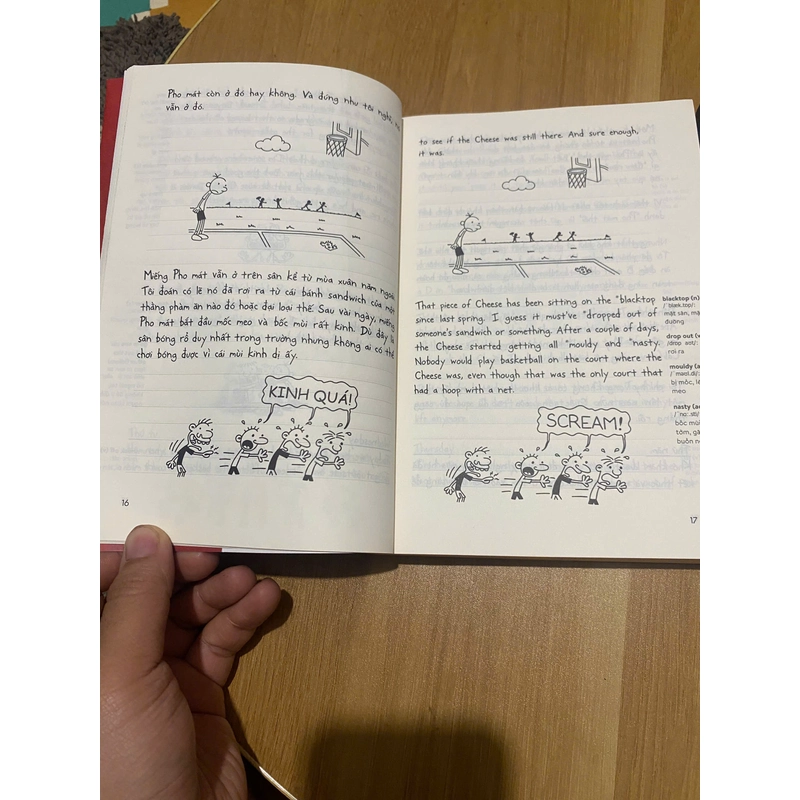 Pho mát còn ở đó hay không. Và đúng như tôi nghĩ,
vẫn ở đó.
Miếng Pho mát vẫn ở trên sân kể từ mùa xuân năm ngoái.
Tôi đoán có lẽ nó đã rơi ra từ cái bánh sandwich của một
thằng phàm ăn nào đó hoặc đại loại thế. Sau vài ngày, miếng
Pho mát bắt đầu mốc meo và bốc mùi rất kinh. Dù đây là
sân bóng rổ duy nhất trong trường nhưng không ai có thể
chơi bóng được vì cái mùi kinh dị ấy.
KINH QUÁ!
16
to see if the Cheese was still there. And sure enough,
it was.
That piece of Cheese has been sitting on the *blacktop
since last spring. I guess it must've *dropped out of
someone's sandwich or something. After a couple of days,
the Cheese started getting all *mouldy and *nasty.
Nobody would play basketball on the court where the
Cheese was, even though that was the only court that
had a hoop with a net.
SCREAM!
blacktop (n)
mặt sân, mặ
đường
drop out (v
rơi ra
mouldy (a
bị mốc, lê
meo
nasty (a
bốc mùi
tởm, gâ
buồn n
17